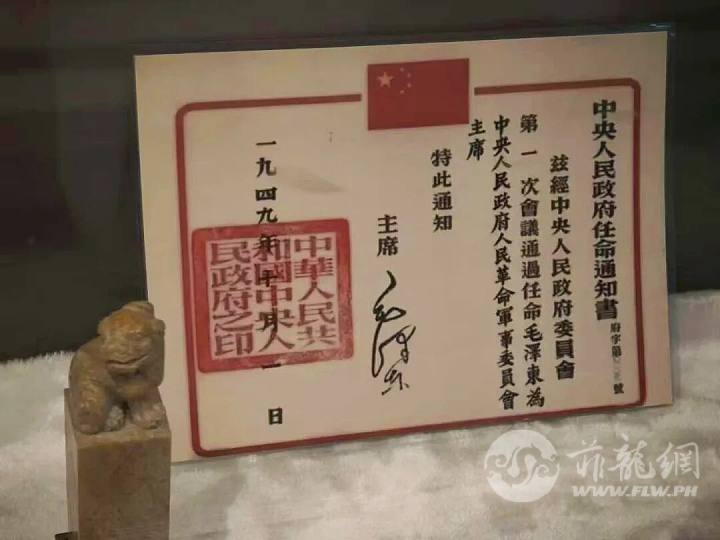 中央人民政府任命通知書
府字第 號
兹經中央人民政府委員會
第一次會議通過任命毛澤東為
中央人民政府人民革命軍事委員會
主席
特此通知
主席
毛澤東
一九四九年十月一日
中華人民共
和國中央人
民政府之印
菲龍網
WWW.FLW.PH